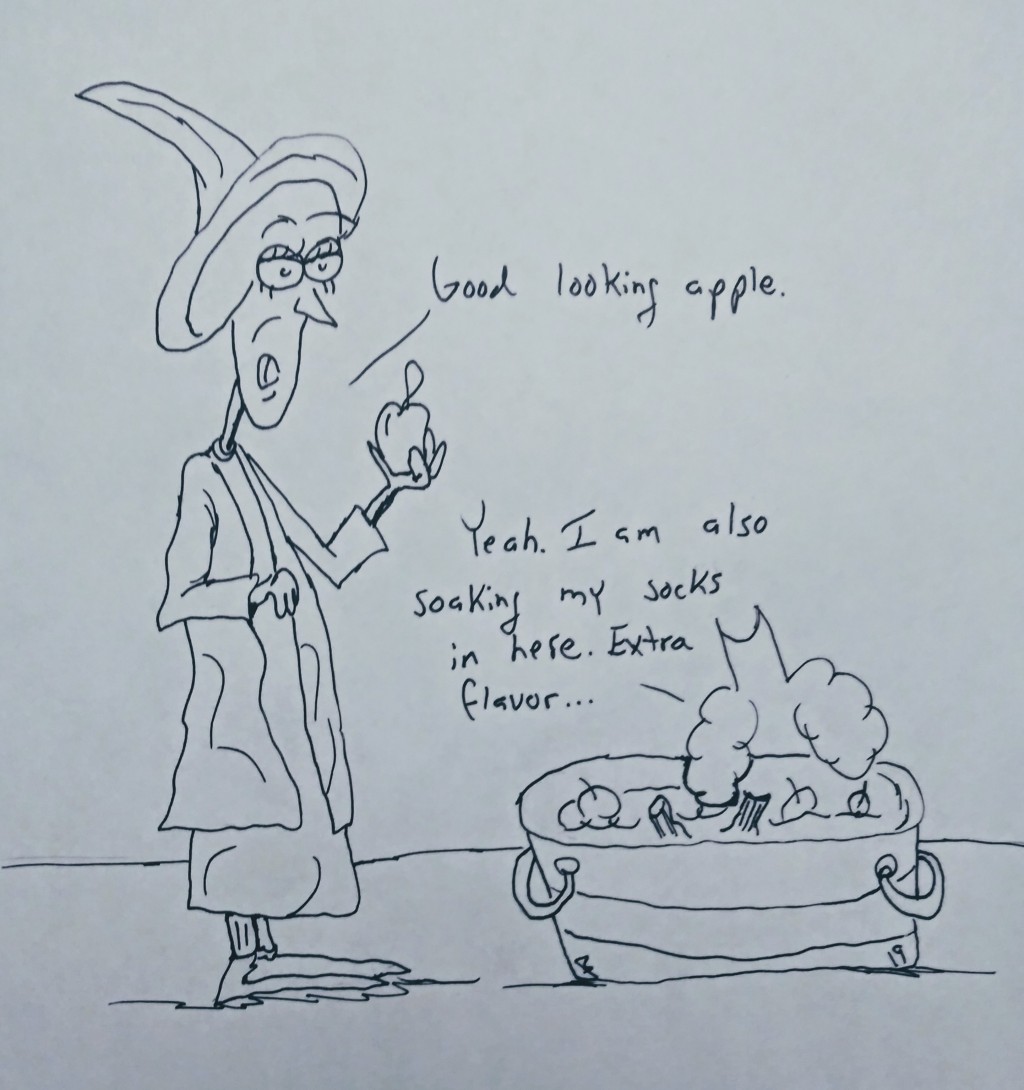 Good looking apple.
Yeah. I am also
soaking my socks
in here. Extra
flavor...
19